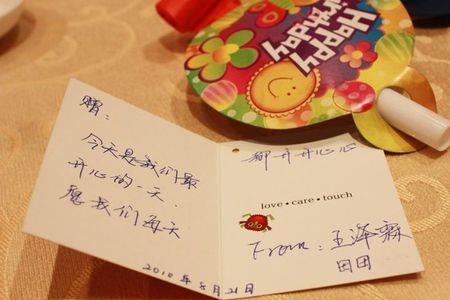 赠:
今天是我们最
开心的一天.
愿我们每天
2010年8月21日
都开开心心
love • care • touch
From: 王泽霖
田团
Happy
Birthday